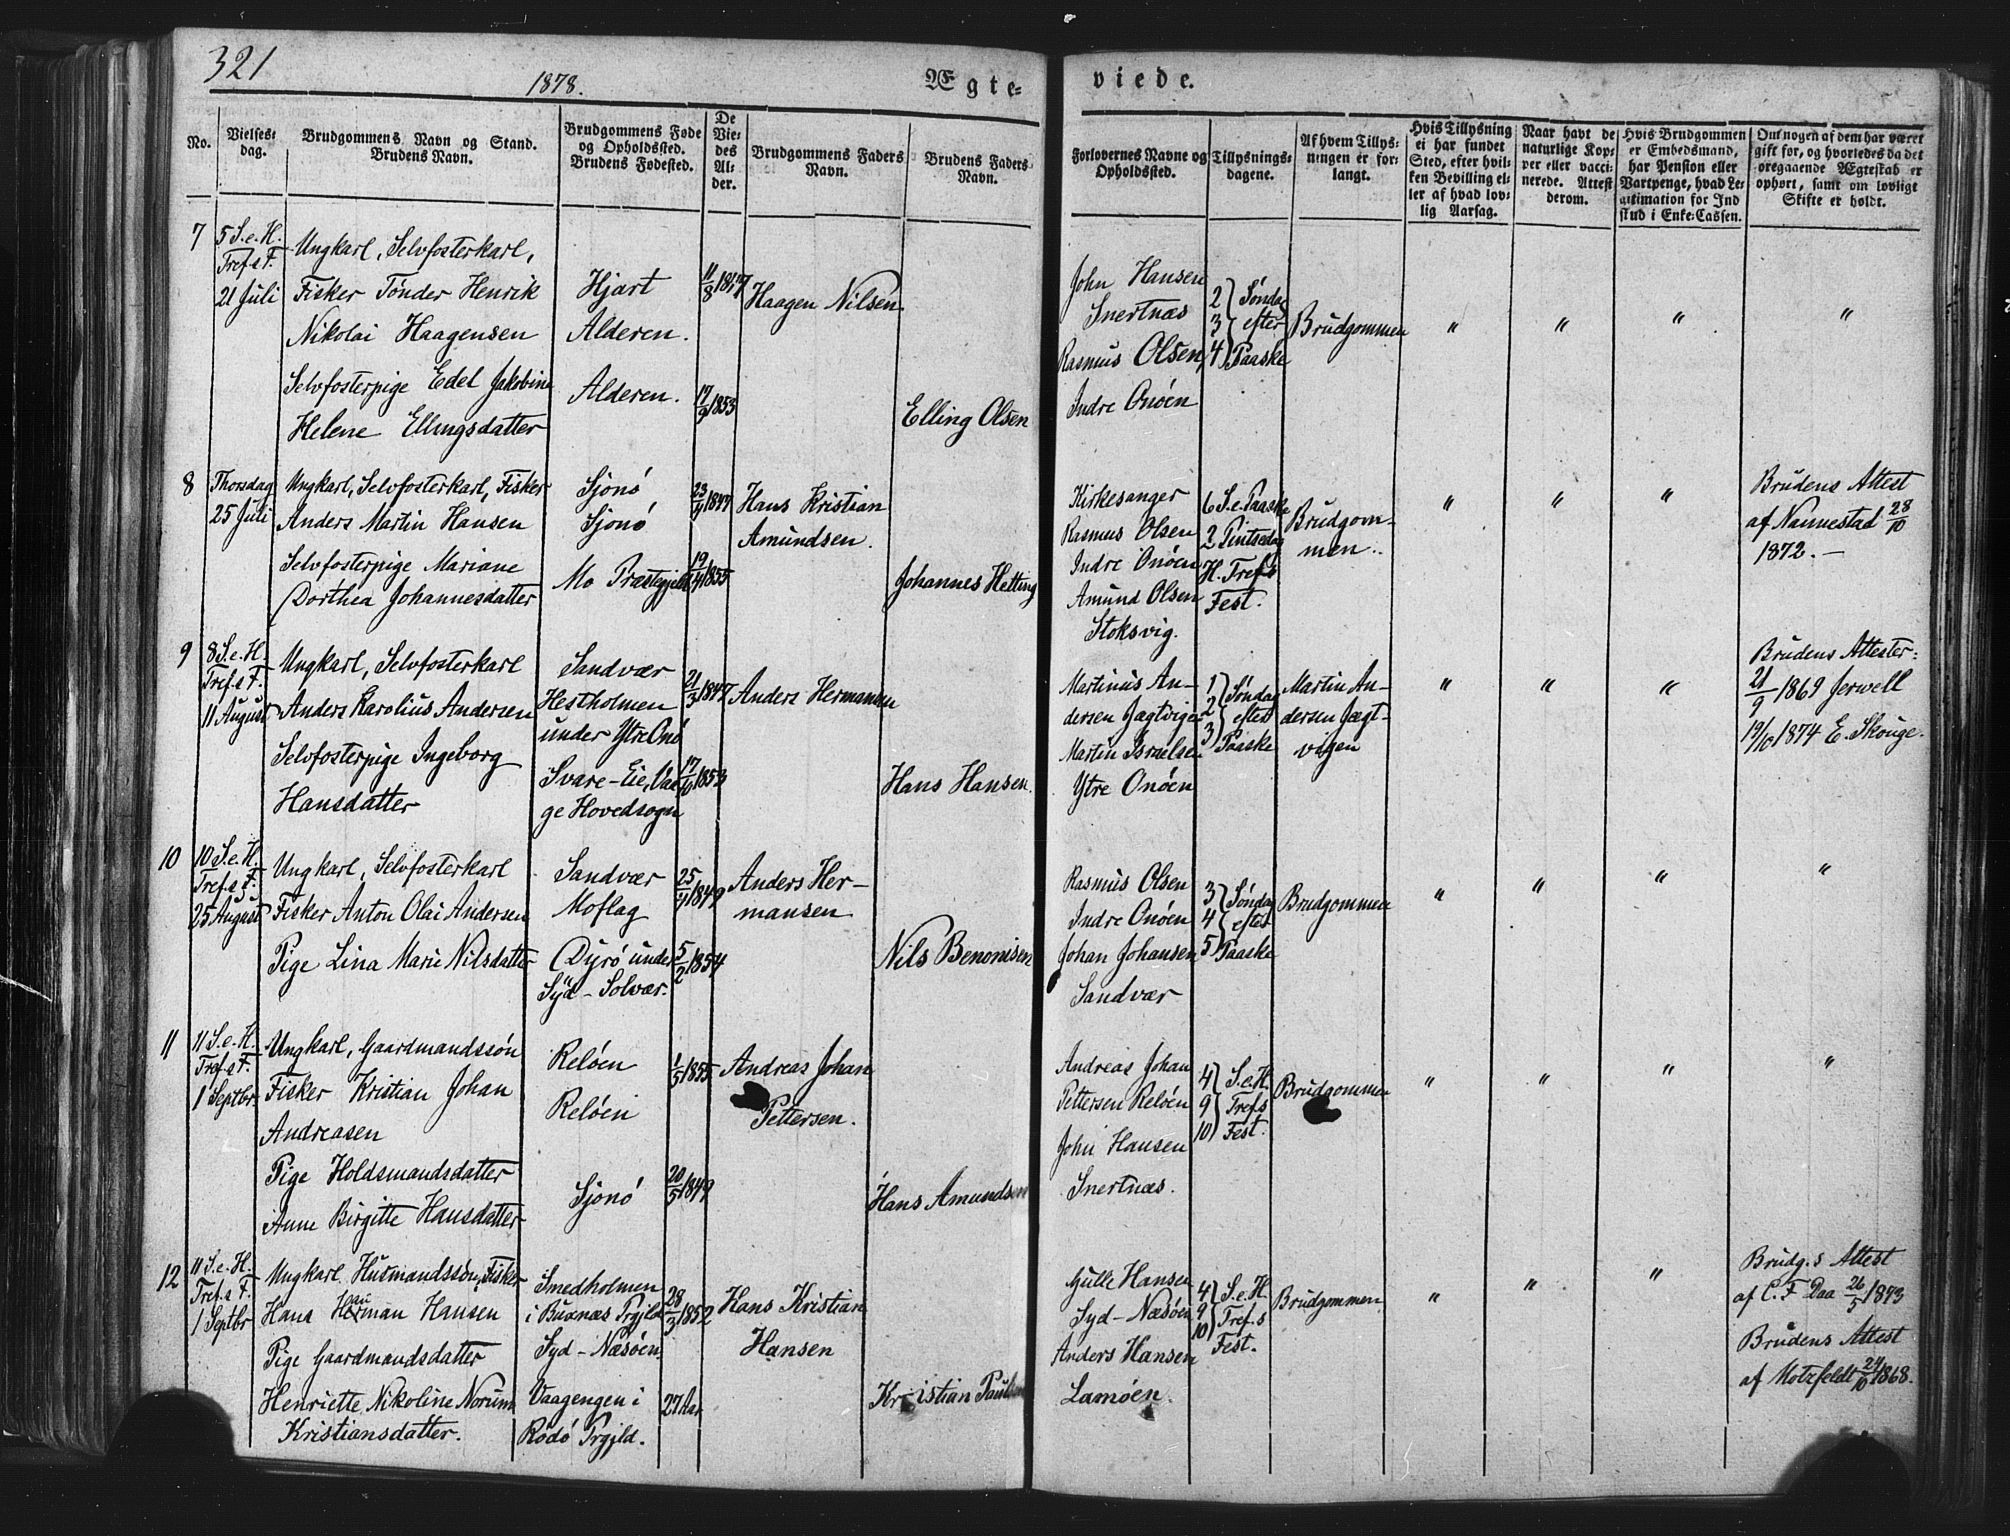 321
1878.
Ægte=
viede.
No.
Vielses=
dag.
Brudgommens Navn og Stand.
Brudens Navn.
Brudgommens Føde
og Opholdssted.
Brudens Fødested.
De
Vie=
des
Al=
der.
Brudgommens Faders
Navn.
Brudens Faders
Navn.
Forlovernes Navne og
Opholdssted.
Tillysnings=
dagene.
Af hvem Tillys=
ningen er for=
langt.
Hvis Tillysning
ei har fundet
Sted, efter hvil=
ken Bevilling el=
ler af hvad lov=
lig Aarsag.
Naar havt de
naturlige Kop=
per eller vacci=
nerede. Attest
derom.
Hvis Brudgommen
er Embedsmand,
har Pension eller
Vartpenge, hvad Le=
gitimation for Ind
skud i Enke=Cassen.
Om nogen af dem har været
gift før, og hvorledes da det
foregaaende Ægteskab er
ophørt, samt om lovligt
Skifte er holdt.
7
5 S. e. H.
Tref.s F.
21 Juli
Ungkarl, Selvfosterkarl,
Fisker Tønder Henrik
Nikolai Haagensen
Selvfosterpige Edel Jakobine
Helene Ellingsdatter
Hjart
Alderen.
Alderen.
11/8
17/9 1853
Haagen Nilsen
Elling Olsen
John Hansen
Snertnæs
Rasmus Olsen,
Indre Onøen
2 } Søndag
3 } efter
4 } Paaske
Brudgommen
" " " "
8
Thorsdag
25 Juli
Ungkarl, Selvfosterkarl, Fisker
Anders Martin Hansen
Selvfosterpige Mariane
Dorthea Johannesdatter
Sjonø
Sjonø
Mo Præstegjeld
23/4 1847
19/4 1855
Hans Kristian
Amundsen.
Johannes Hetting
Kirkesanger
Rasmus Olsen
Indre Onøen
Amund Olsen
Stoksvig.
6 S. e. Paaske
2 Pintsedag
H. Tref.s
Fest.
Brudgom-
men.
" " "
Brudens Attest
af Nannestad 28/10
1872. —
9
8 S. e. H.
Tref.s F.
11 August
Ungkarl, Selvfosterkarl
Anders Karolius Andersen
Selvfosterpige Ingeborg
Hansdatter
Sandvær
Hestholmen
under Ytre Onø
Svare-Eie, Vaa
ge Hovedsogn
21/3 1847
17/10 1853
Anders Hermansen
Hans Hansen.
Martinus An-
dersen Jægtvigen
Martin Israelsen
Ytre Onøen
1 } Søndag
2 } efter
3 } Paaske
Martin An-
dersen Jægt-
vigen
" " "
Brudens Attester:
21/9 1869 Jerwell
19/10 1874 E. Skouge.
10
10 S. e. H.
Tref.s F.
25 August
Ungkarl, Selvfosterkarl
Fisker Anton Olai Andersen
Pige Lina Marie Nilsdatter
Sandvær
Moflag
Dyrø under
Syd-Solvær.
25/4 1849
5/2 1854
Anders Her-
mansen
Nils Benonisen
Rasmus Olsen
Indre Onøen
Johan Johansen
Sandvær
3 } Søndag
4 } efter
5 } Paaske
Brudgommen
" " " "
11
11 S. e. H.
Tref.s F.
1 Septbr.
Ungkarl, Gaardmandssøn
Fisker Kristian Johan
Andreasen
Pige Holdsmandsdatter
Anne Birgitte Hansdatter
Reløen
Reløen
Sjonø
1/5 1855
20/5 1849
Andreas Johan
Pettersen.
Hans Amundsen
Andreas Johan
Pettersen Reløen
John Hansen
Snertnæs.
4 } S. e. H.
9 } Tref.s
10 } Fest.
Brudgommen
" " " "
12
11 S. e. H.
Tref.s F.
1 Septbr
Ungkarl, Husmandssøn, Fisker
Hans Herman Hansen
Pige Gaardmandsdatter
Henriette Nikoline Norum
Kristiansdatter.
Smedholmen
i Buxnæs Prgjld
Syd-Næsøen
Vaagengen i
Rødø Prgjld.
28/3 1852
27 Aar
Hans Kristian
Hansen
Kristian Paulsen
Gulle Hansen
Syd-Næsøen
Anders Hansen
Lamøen.
4 } S. e. H
9 } Tref.s
10 } Fest.
Brudgommen
" " "
Brudg.s Attest
af C. F Daa 26/5 1873
Brudens Attest
af Motzfeldt 24/10 1868.